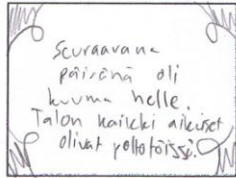 Seuraavana
päivänä oli
kuuma helle.
Talon kaikki aikuiset
olivat peltotöissä.